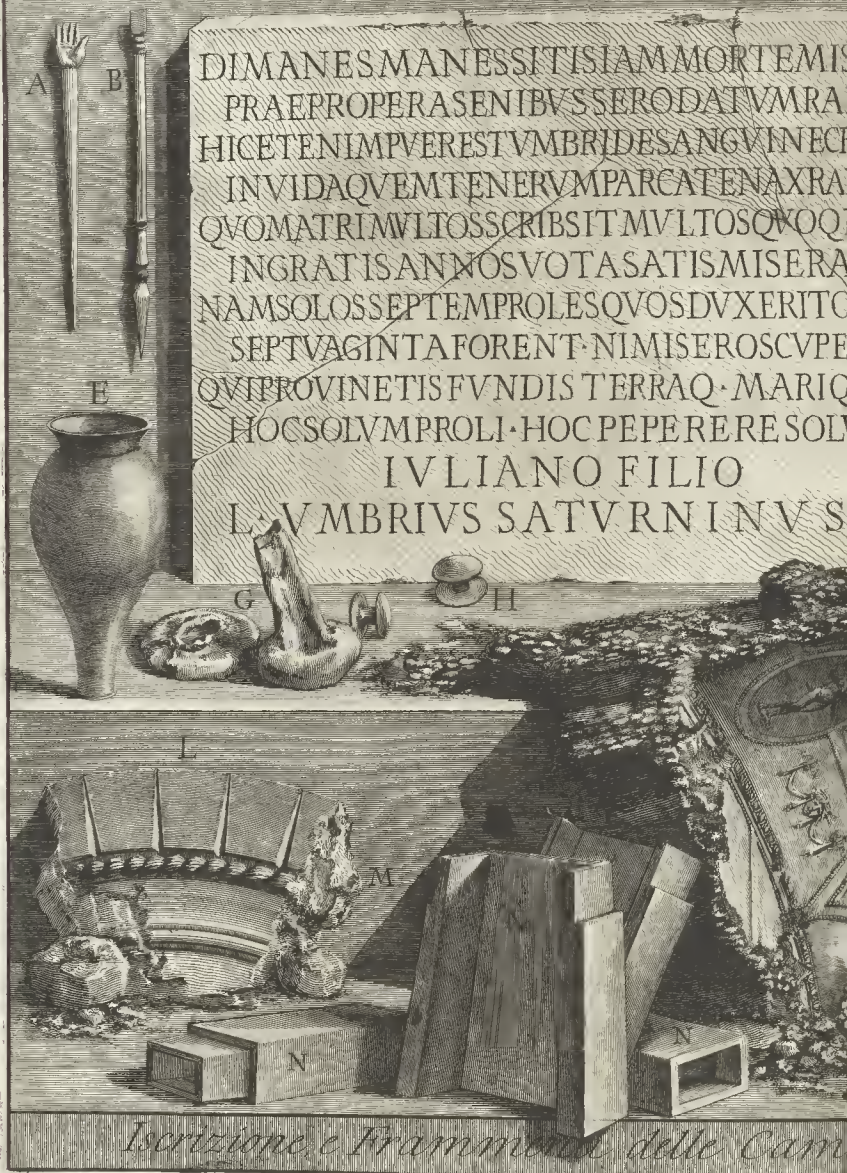 A
B
DIMANESMANESSITISIAMMORTEMIS
PRAEPROPERASENIBVSSERODATVMRA
HICETENIMPVERESTVMBRIDESANGVINECE
INVIDAQVEMTENERVMPARCATENAXRA
QVOMATRIMVLTOSSCRIBSITMVLTOSQVOQ
INGRATISANNOSVOTASATISMISERA
NAMSOLOSSEPTEMPROLESQVOSDVXERITO
SEPTVAGINTAFORENT·NIMISEROSCVPE
QVIPROVINETISFVNDISTERRAQ·MARIQ
HOCSOLVMPROLI·HOCPEPERERESOLV
IVLIANO FILIO
L·VMBRIVS SATVRNINVS
E
G
H
L
M
N
N
N
Iscrizione, e Frammenti delle Cam